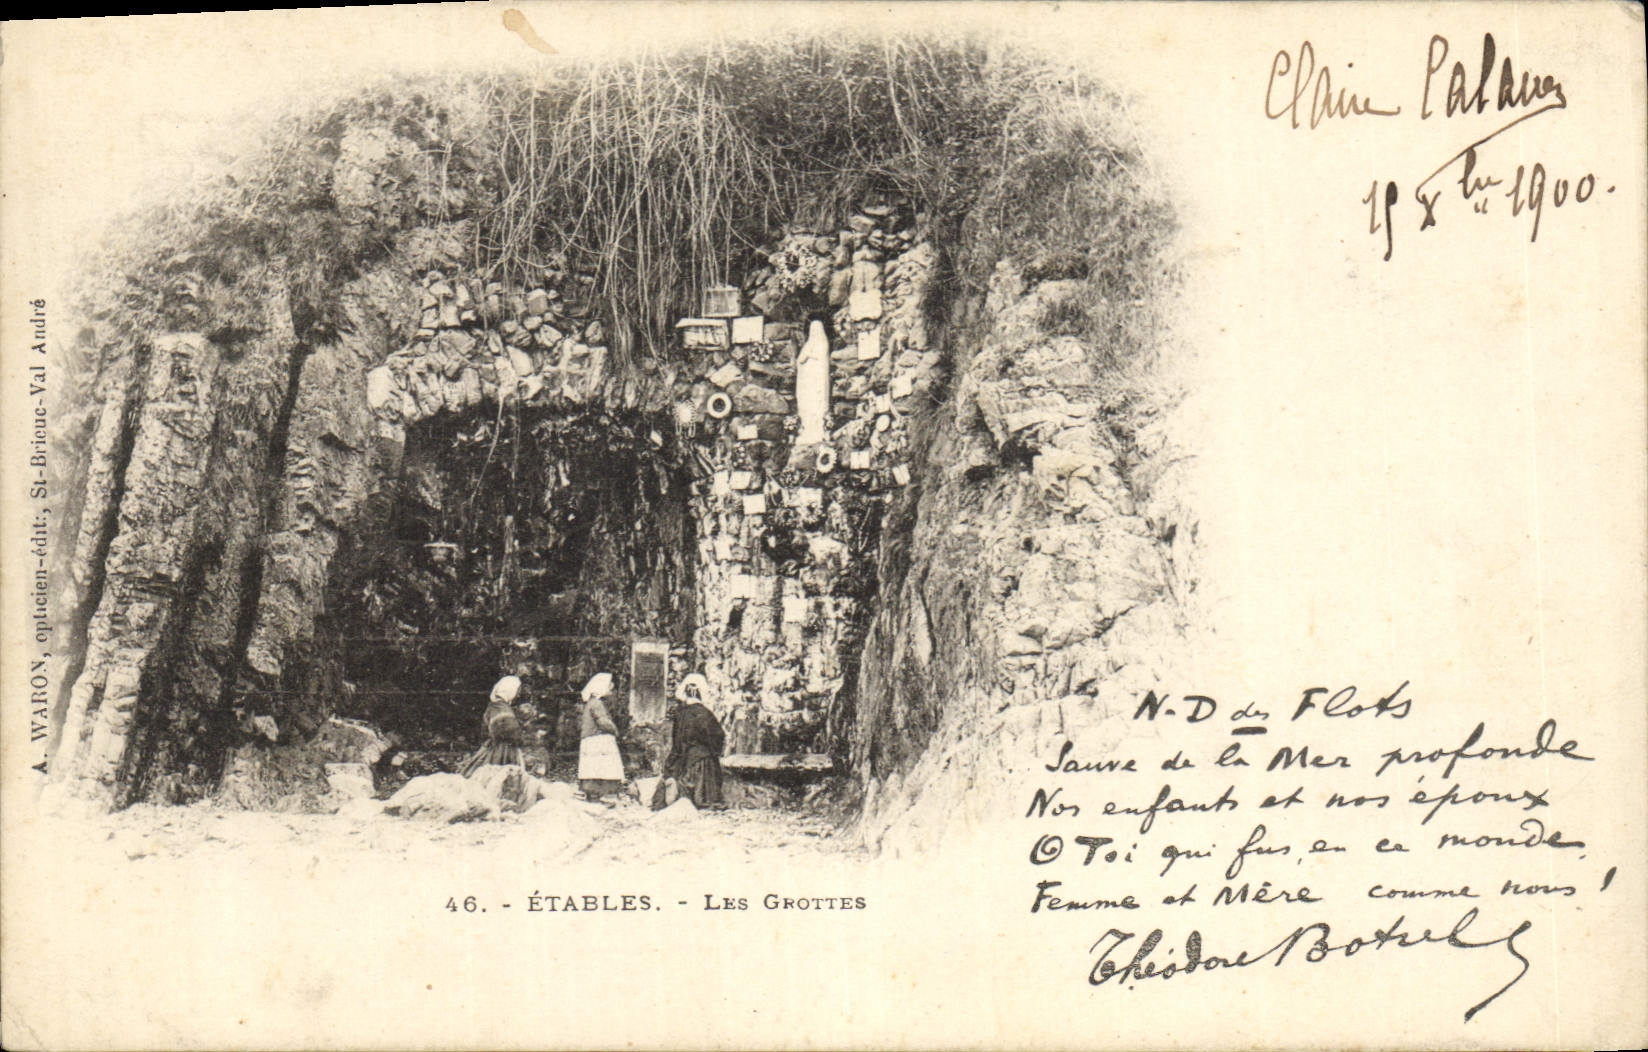 Claire
15 Xbre 1900.
A. WARON, opticien-édit:, St-Brieuc-Val André
N-D des Flots
Sauve de la Mer profonde
Nos enfants et nos époux
O Toi qui fus, en ce monde,
Femme et Mère comme nous !
Théodore Botrel
46. - ÉTABLES. - LES GROTTES